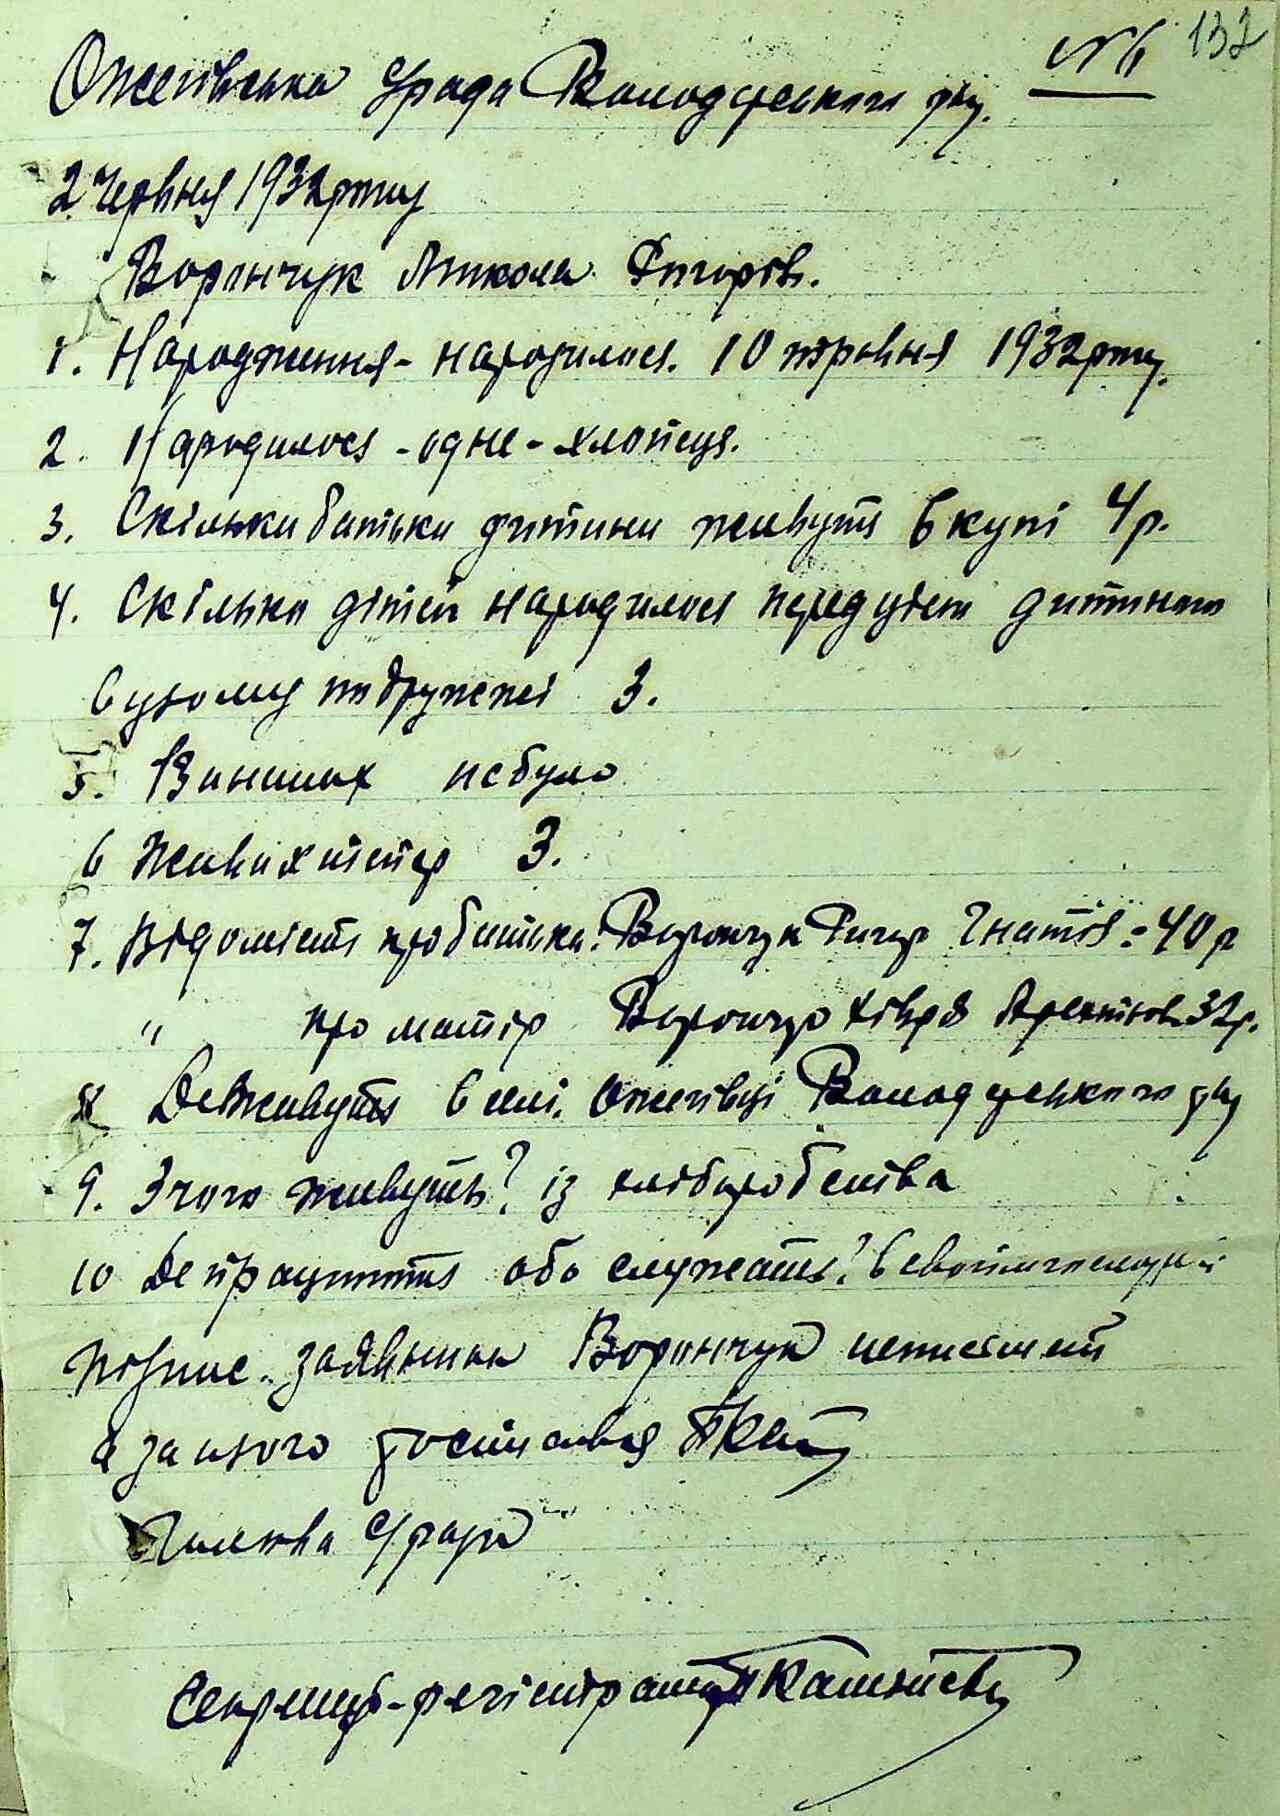 № 6 132
Ожегівська с/рада Володарського р-ну.
2 Червня 1932 року
Воринчук Микола Григорів.
1. Народження - народилося. 10 травня 1932 року.
2. Народилося - одне - хлопець.
3. Скільки батьки дитини живуть вкупі 4 р.
4. Скільки дітей народилося перед цією дитиною
в цьому подружжі 3.
5. В инших небуло
6 Живих тепер 3.
7. Відомість про батька: Воринчук Григор Гнатів = 40 р
" про матір Воринчук Хівря 32 р.
8 Де живуть в селі Ожегівці Володарського р-ну
9. З чого живуть? із хліборобства
10 Де працюють або служать? в своїм
Підпис заявника Воринчук неписьмений
а за нього росписався
Голова с/ради
Секретар-регістратор